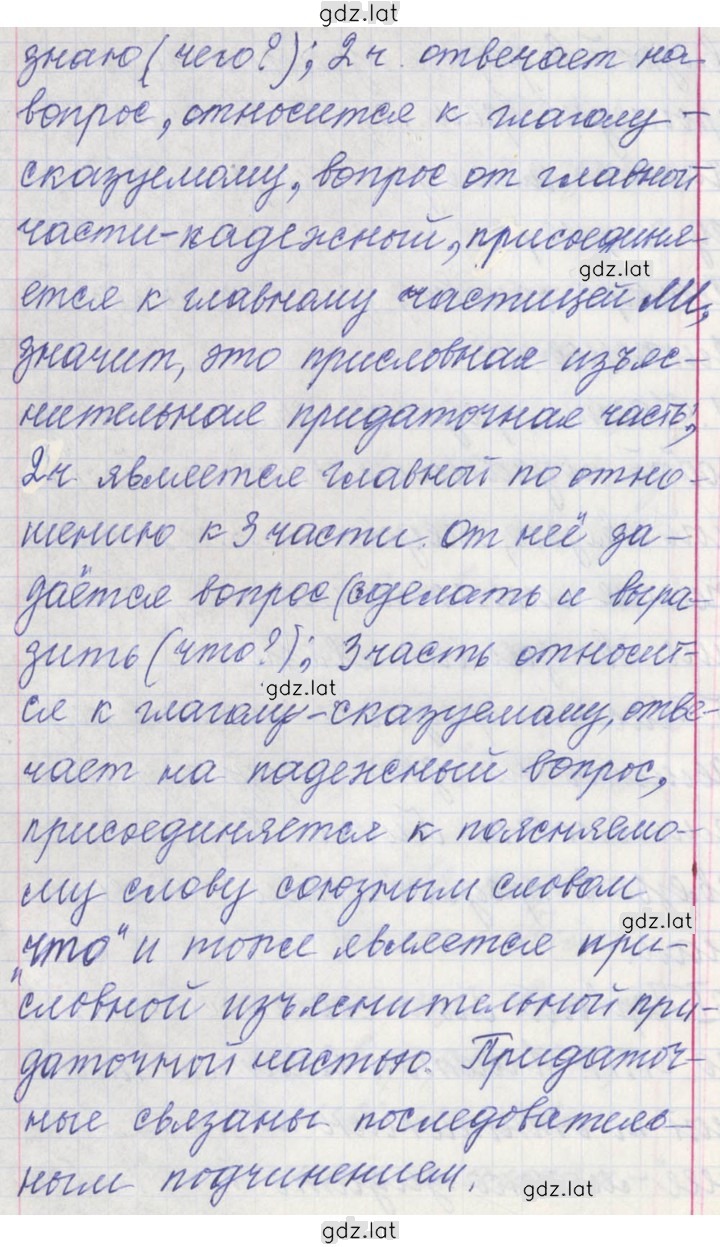 gdz.lat
знаю (чего?); 2 ч. отвечает на
вопрос, относится к глаголу-
сказуемому, вопрос от главной
части-падежный, присоединя-
gdz.lat
ется к главному частицей ли,
значит, это присловная изъяс-
нительная придаточная часть;
2 ч является главной по отно-
шению к 3 части. От неё за-
даётся вопрос (сделать и выра-
зить (что?); 3 часть относит-
gdz.lat
ся к глаголу-сказуемому, отве-
чает на падежный вопрос,
присоединяется к поясняемо-
му слову союзным словом
gdz.lat
"что" и тоже является при-
словной изъяснительной при-
даточной частью. Придаточ-
ные связаны последователь-
ным подчинением.
gdz.lat
gdz.lat